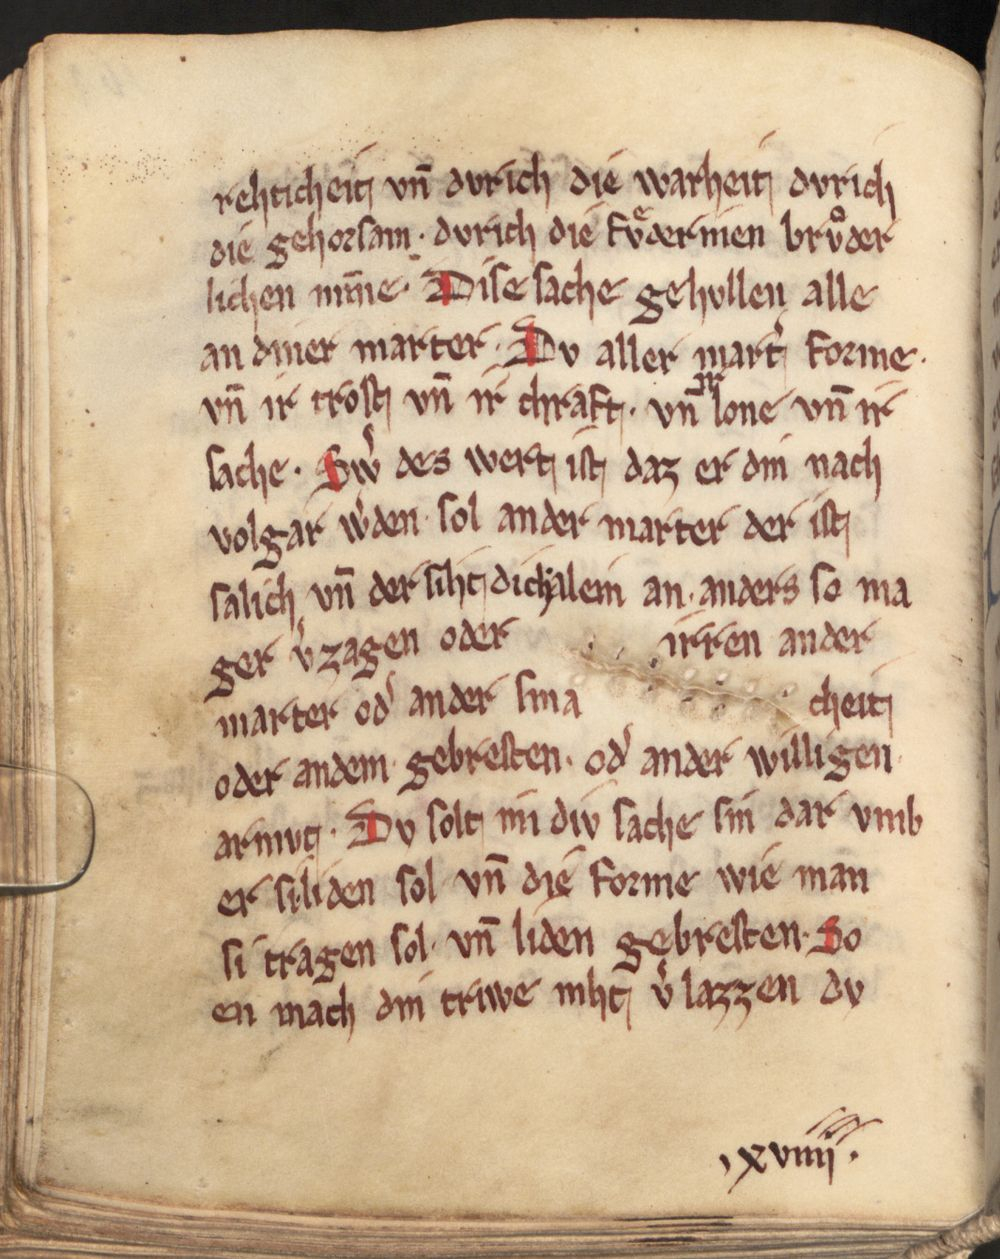 rehticheit vn̄ dvrich die warheit dvrich
die gehorsam · dvrich die fvͤdermen brvͦder
lichen mīne · Dise sache gehvllen alle
an diner marter · Dv aller mart̾ forme ·
vn̄ ir trost vn̄ ir chraft · vn̄ ir lone vn̄ ir
sache · Sw̾ des wert ist daz er din nach
volgar w̾den sol an der marter der ist
salich vn̄ der siht dich alein an · anders so ma
ger v̾zagen oder irren an der
marter od̾ an der sma cheit
oder an dem gebresten · od̾ an der willigen
armvt · Dv solt im div sache sin dar vmb
er si liden sol vn̄ die forme wie man
si tragen sol · vn̄ liden gebresten · So
en mach din triwe niht v̾lazzen dv
·xviiii·